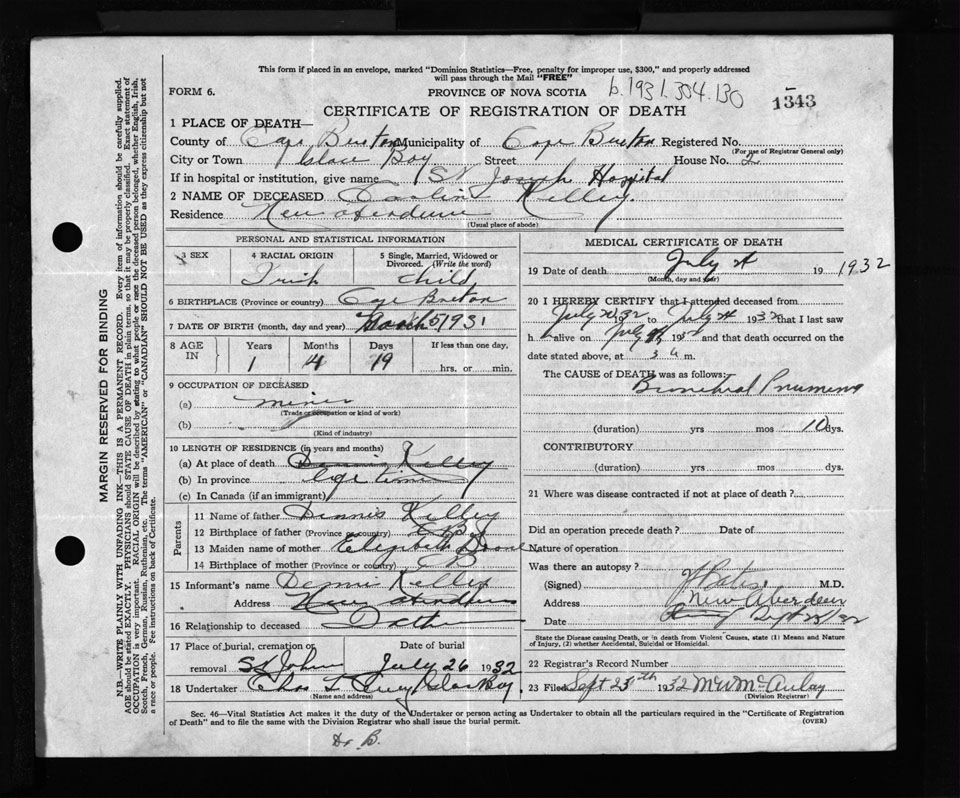 This form if placed in an envelope, marked "Dominion Statistics—Free, penalty for improper use, $300," and properly addressed
will pass through the Mail "FREE"
FORM 6.
PROVINCE OF NOVA SCOTIA
b.1931.304.130
1343
CERTIFICATE OF REGISTRATION OF DEATH
1 PLACE OF DEATH—
County of Cape Breton Municipality of Cape Breton Registered No.
(For use of Registrar General only)
City or Town Glace Bay Street House No. 2
If in hospital or institution, give name St Joseph Hospital
2 NAME OF DECEASED Kelley.
Residence New Aberdeen
(Usual place of abode)
PERSONAL AND STATISTICAL INFORMATION
3 SEX
4 RACIAL ORIGIN
5 Single, Married, Widowed or Divorced. (Write the word)
Irish
Child
6 BIRTHPLACE (Province or country) Cape Breton
7 DATE OF BIRTH (month, day and year) March 5 1931
8 AGE IN
Years
Months
Days
If less than one day.
1
4
19
hrs. or min.
9 OCCUPATION OF DECEASED
(a) miner
(Trade or occupation or kind of work)
(b)
(Kind of industry)
10 LENGTH OF RESIDENCE (in years and months)
(a) At place of death Dennis Kelley
(b) In province life time
(c) In Canada (if an immigrant)
Parents
11 Name of father Dennis Kelley
12 Birthplace of father (Province or country) C B
13 Maiden name of mother Elizabeth
14 Birthplace of mother (Province or country) C B
15 Informant's name Dennis Kelley
Address New Aberdeen
16 Relationship to deceased Father
17 Place of burial, cremation or removal St John
Date of burial July 26 1932
18 Undertaker Chas T Glace Bay
(Name and address)
MEDICAL CERTIFICATE OF DEATH
19 Date of death July 24 19 1932
(Month, day and year)
20 I HEREBY CERTIFY that I attended deceased from
July 20 32 to July 24 1932 that I last saw
h alive on July 193 and that death occurred on the
date stated above, at 3 a m.
The CAUSE of DEATH was as follows:
Bronchial Pneumonia
(duration) yrs mos 10 dys.
CONTRIBUTORY
(duration) yrs mos dys.
21 Where was disease contracted if not at place of death?
Did an operation precede death? Date of
Nature of operation
Was there an autopsy?
(Signed) M.D.
Address New Aberdeen
Date Sept 23/32
State the Disease causing Death, or in death from Violent Causes, state (1) Means and Nature
of Injury, (2) whether Accidental, Suicidal or Homicidal.
22 Registrar's Record Number
23 Filed Sept 23th 1932 McAulay
(Division Registrar)
Sec. 46—Vital Statistics Act makes it the duty of the Undertaker or person acting as Undertaker to obtain all the particulars required in the "Certificate of Registration
of Death" and to file the same with the Division Registrar who shall issue the burial permit.
(OVER)
Dr B.
MARGIN RESERVED FOR BINDING
N.B.—WRITE PLAINLY WITH UNFADING INK—THIS IS A PERMANENT RECORD. Every item of information should be carefully supplied.
AGE should be stated EXACTLY. PHYSICIANS should STATE CAUSE OF DEATH in plain terms, so that it may be properly classified. Exact statement of
OCCUPATION is very important. RACIAL ORIGIN will be described by stating to what people or race the deceased person belonged, whether English, Irish,
Scotch, French, German, Russian, Ruthenian, etc. The terms "AMERICAN" or "CANADIAN" SHOULD NOT BE USED as they express citizenship but not
a race or people. See instructions on back of Certificate.